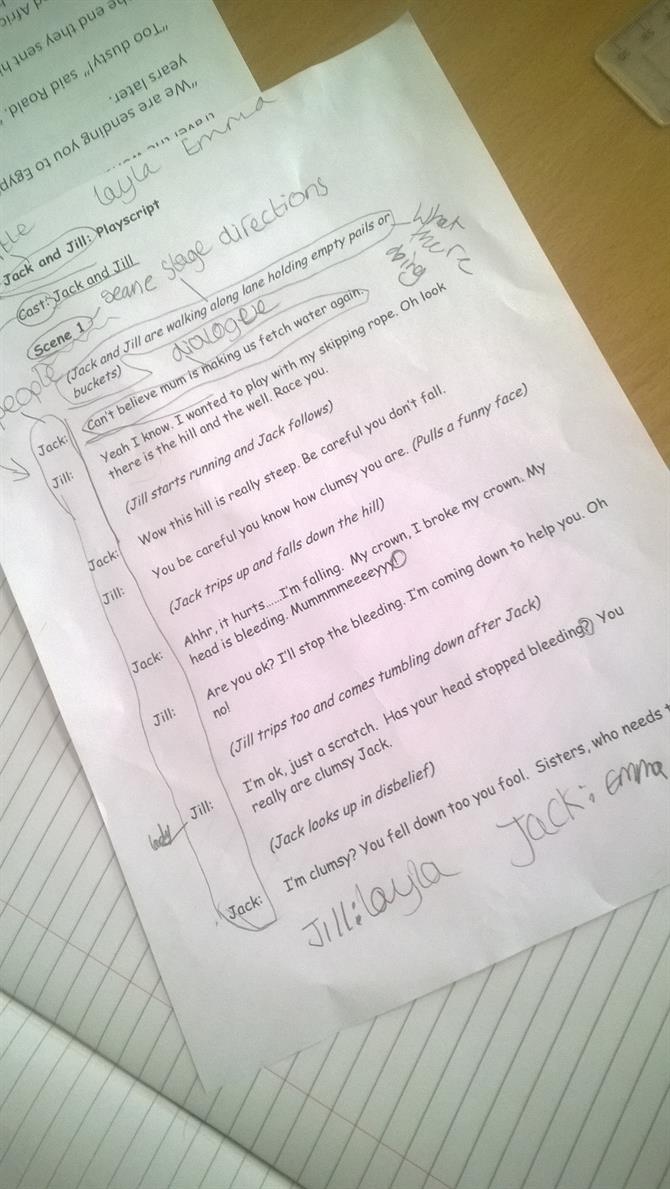 he end they sent h
"Too dusty," said Roald.
years later.
"We are sending you to Egyp
layla Emma
Jack and Jill: Playscript
Cast: Jack and Jill
Scene 1 seane stage directions
(Jack and Jill are walking along lane holding empty pails or
buckets)
What
there
doing
dialogee
people
Jack: Can't believe mum is making us fetch water again.
Jill: Yeah I know. I wanted to play with my skipping rope. Oh look
there is the hill and the well. Race you.
(Jill starts running and Jack follows)
Jack: Wow this hill is really steep. Be careful you don't fall.
Jill: You be careful you know how clumsy you are. (Pulls a funny face)
(Jack trips up and falls down the hill)
Jack: Ahhr, it hurts......I'm falling. My crown, I broke my crown. My
head is bleeding. Mummmmeeeeyyy!
Jill: Are you ok? I'll stop the bleeding. I'm coming down to help you. Oh
no!
(Jill trips too and comes tumbling down after Jack)
Jill: I'm ok, just a scratch. Has your head stopped bleeding? You
really are clumsy Jack.
(Jack looks up in disbelief)
Jack: I'm clumsy? You fell down too you fool. Sisters, who needs t
Jill: layla Jack: Emma